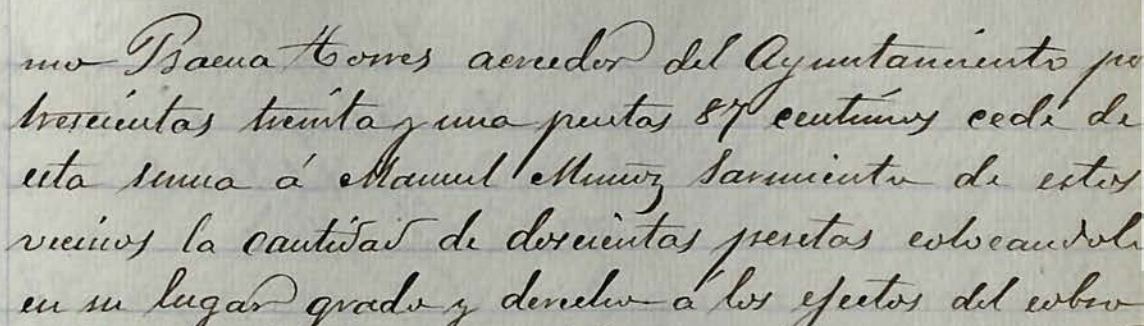 mo Baena Torres acreedor del Ayuntamiento po
trescientas treinta y una pesetas 87 centimos cede de
esta suma á Manuel Muñoz Sarmiento de estos
vecinos la cantidad de doscientas pesetas colocandole
en su lugar grado y derecho á los efectos del cobro